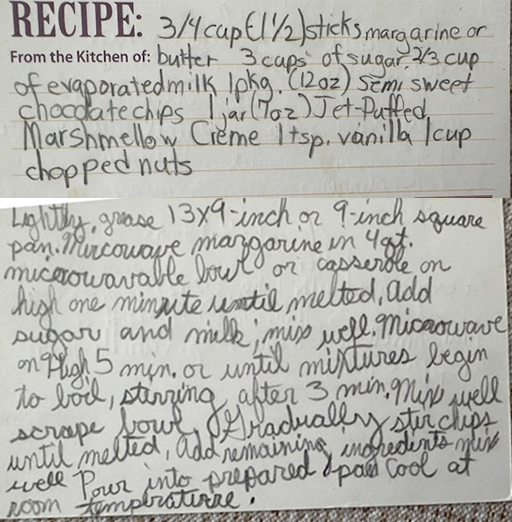 RECIPE: 3/4 cup (1 1/2) sticks margarine or
From the Kitchen of: butter 3 cups of sugar 2/3 cup
of evaporated milk 1 pkg. (12oz) semi sweet
chocolate chips 1 jar (7oz) Jet-Puffed
Marshmellow Crème 1 tsp. vanilla 1 cup
chopped nuts
Lightly grease 13x9-inch or 9-inch square
pan. Mircowave margarine in 4 qt.
microwavable bowl or casserole on
high one minute until melted, add
sugar and milk; mix well. Microwave
on High 5 min. or until mixtures begin
to boil, stirring after 3 min. Mix well
scrape bowl. Gradually stir chips
until melted, add remaining ingredients mix
well Pour into prepared pan Cool at
room temperature.